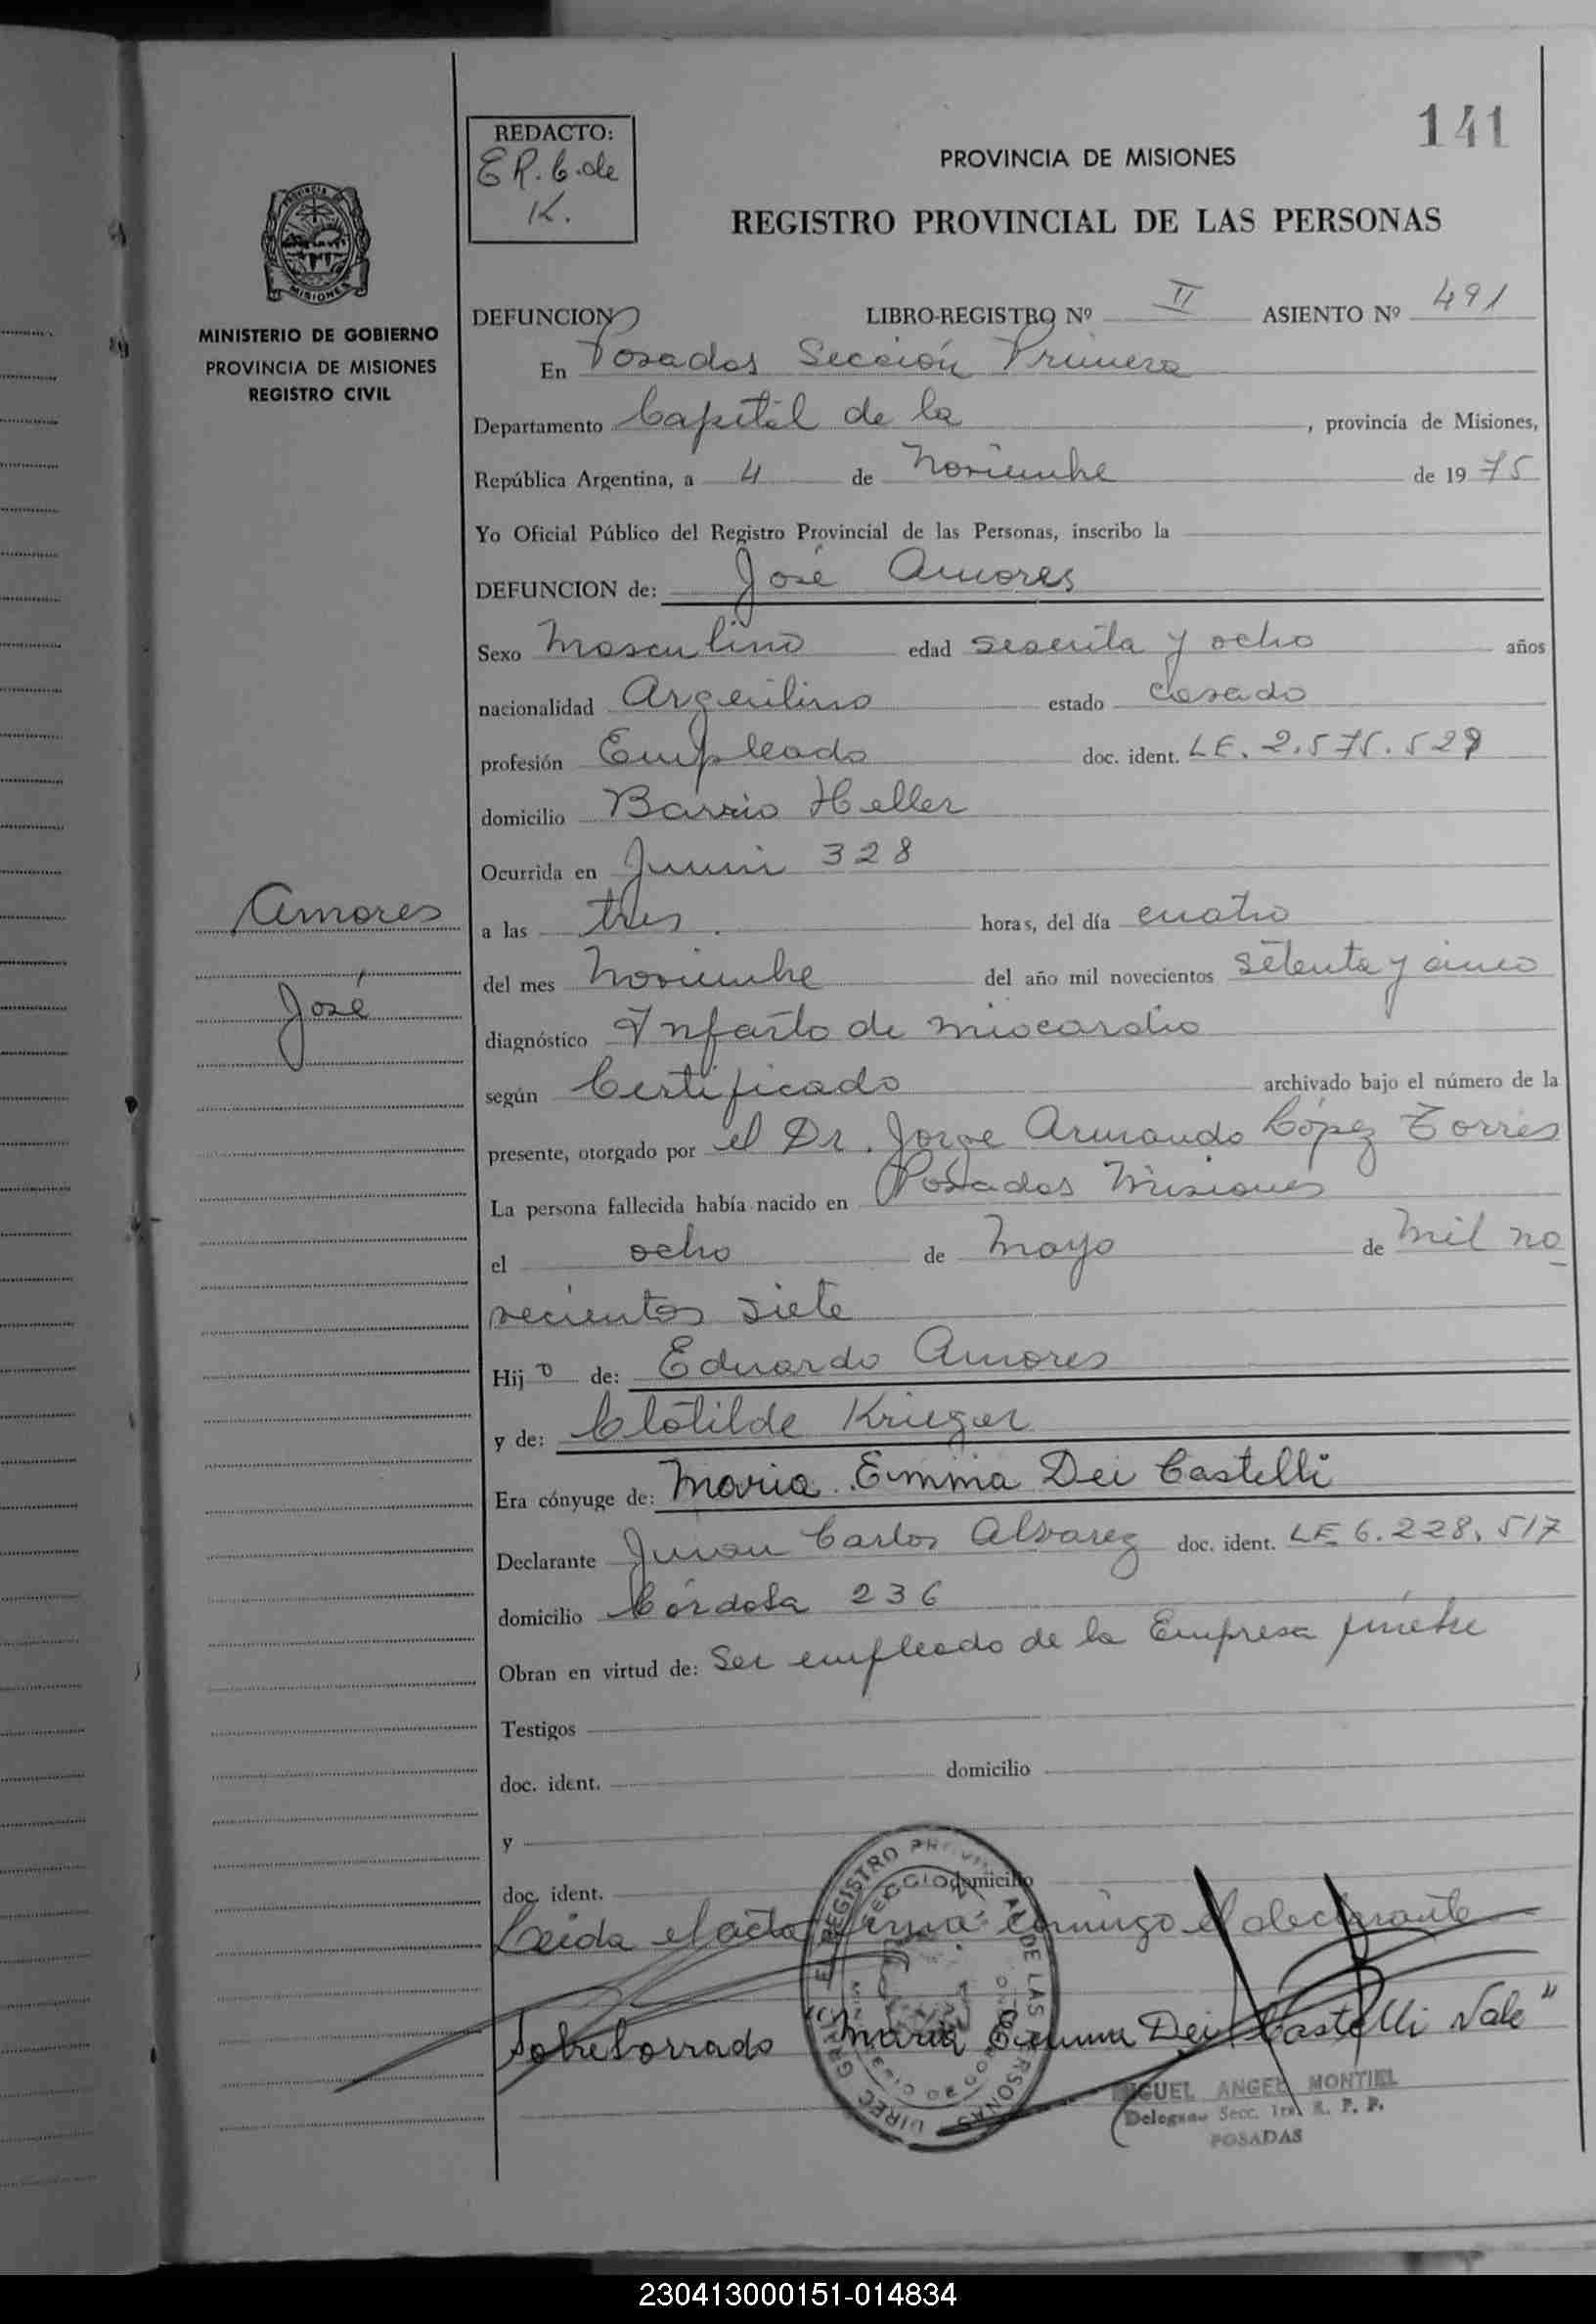 141
REDACTO:
E R. C. de
K.
PROVINCIA DE MISIONES
REGISTRO PROVINCIAL DE LAS PERSONAS
MISIONES
MINISTERIO DE GOBIERNO
PROVINCIA DE MISIONES
REGISTRO CIVIL
DEFUNCION LIBRO-REGISTRO Nº II ASIENTO Nº 491
En Posadas Sección Primera
Departamento Capital de la , provincia de Misiones,
República Argentina, a 4 de Noviembre de 1975
Yo Oficial Público del Registro Provincial de las Personas, inscribo la
DEFUNCION de: José Amores
Sexo Masculino edad sesenta y ocho años
nacionalidad Argentino estado casado
profesión Empleado doc. ident. LE. 2.575.529
domicilio Barrio Heller
Ocurrida en Junin 328
Amores
José
a las tres. horas, del día cuatro
del mes Noviembre del año mil novecientos setenta y cinco
diagnóstico Infarto de miocardio
según Certificado archivado bajo el número de la
presente, otorgado por el Dr. Jorge Armando López Torres
La persona fallecida había nacido en Posadas Misiones
el ocho de Mayo de mil no
vecientos siete
Hijo de: Eduardo Amores
y de: Clotilde Krieger
Era cónyuge de: Maria Emma Dei Castelli
Declarante Juan Carlos Alvarez doc. ident. LE 6.228.517
domicilio Córdoba 236
Obran en virtud de: Ser empleado de la Empresa fúnebre
Testigos
doc. ident. domicilio
y
doc. ident. domicilio
Leida el acta firma conmigo el declarante
Sobreborrado "Maria Emma Dei Castelli Vale"
MIGUEL ANGEL MONTIEL
Delegado Secc. 1ra. R. P. P.
POSADAS
230413000151-014834